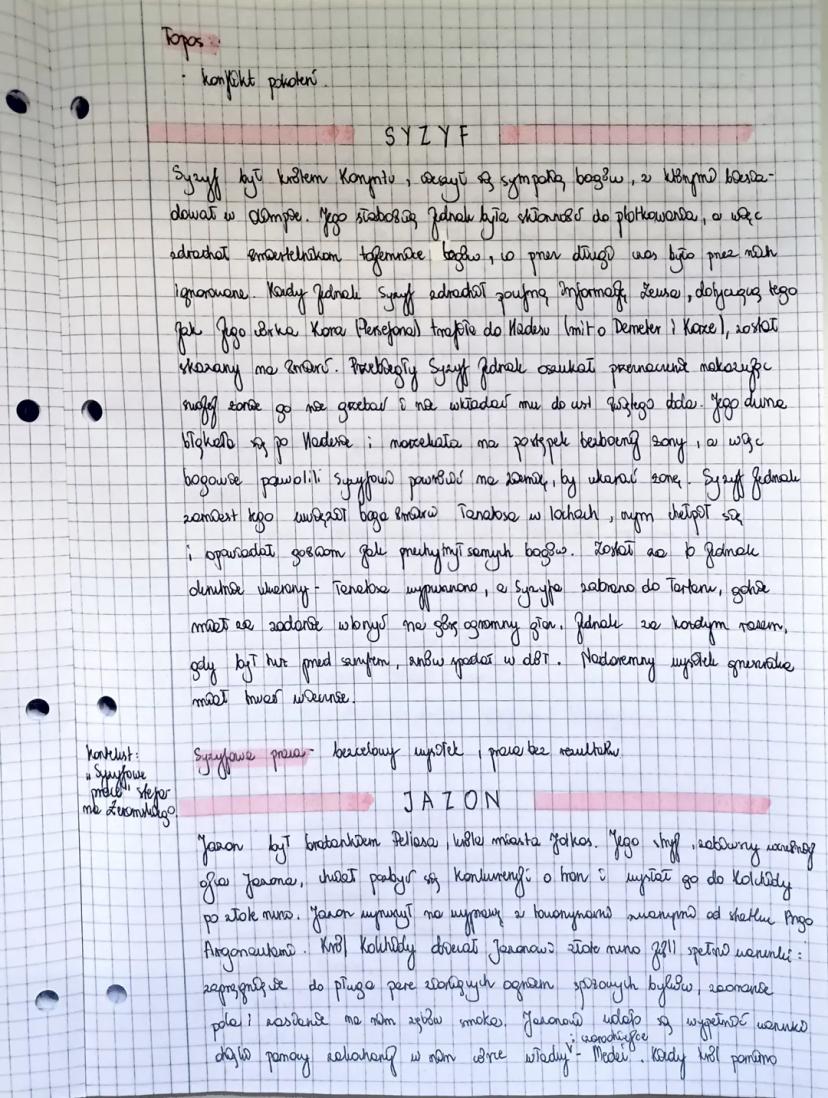 Topos:
· konflikt pokoleń.
SYZYF
Syzyf był królem Koryntu, cieszył się sympatią bogów, z którymi biesia-
dował w Olimpie. Jego słabością jednak była skłonność do plotkowania, a więc
zdradzał śmiertelnikom tajemnice bogów, co przez długi czas było przez nich
ignorowane. Kiedy jednak Syzyf zdradził poufną informację Zeusa, dotyczącą tego
jak jego córka Kora (Persefona) trafiła do Hadesu (mit o Demeter i Korze), został
skazany na śmierć. Przebiegły Syzyf jednak oszukał przeznaczenie nakazując
swojej żonie go nie grzebać i nie wkładać mu do ust obola. Jego dusza
błąkała się po Hadesie i narzekała na postępek bezbożnej żony, a więc
bogowie pozwolili Syzyfowi powrócić na ziemię, by ukarać żonę. Syzyf jednak
zamiast tego uwięził boga śmierci Tanatosa w lochach, czym chełpił się
i opowiadał gościom jak przechytrzył samych bogów. Został za to jednak
okrutnie ukarany - Tanatosa wypuszczono, a Syzyfa zabrano do Tartaru, gdzie
miał za zadanie wtoczyć na górę ogromny głaz. Jednak za każdym razem,
gdy był tuż przed szczytem, znów spadał w dół. Nadaremny wysiłek grzesznika
miał trwać wiecznie.
Kontekst:
„Syzyfowe
prace” Stefa-
na Żeromskiego.
Syzyfowa praca - bezcelowy wysiłek, praca bez rezultatu
JAZON
Jazon był bratankiem Peliasa, króla miasta Jolkos. Jego stryj,
ojca Jazona, chciał pozbyć się konkurencji o tron i wysłał go do Kolchidy
po złote runo. Jazon wyruszył na wyprawę z towarzyszami zwanymi od statku Argo
Argonautami. Król Kolchidy obiecał Jazonowi złote runo jeśli spełni warunki:
zaprzęgnięcie do pługa parę ziejących ogniem spiżowych byków, zaoranie
pola i zasianie na nim zębów smoka. Jazonowi udało się wypełnić warunki
i czarodziejce
dzięki pomocy zakochanej w nim córce władcy - Medei. Kiedy król pomimo